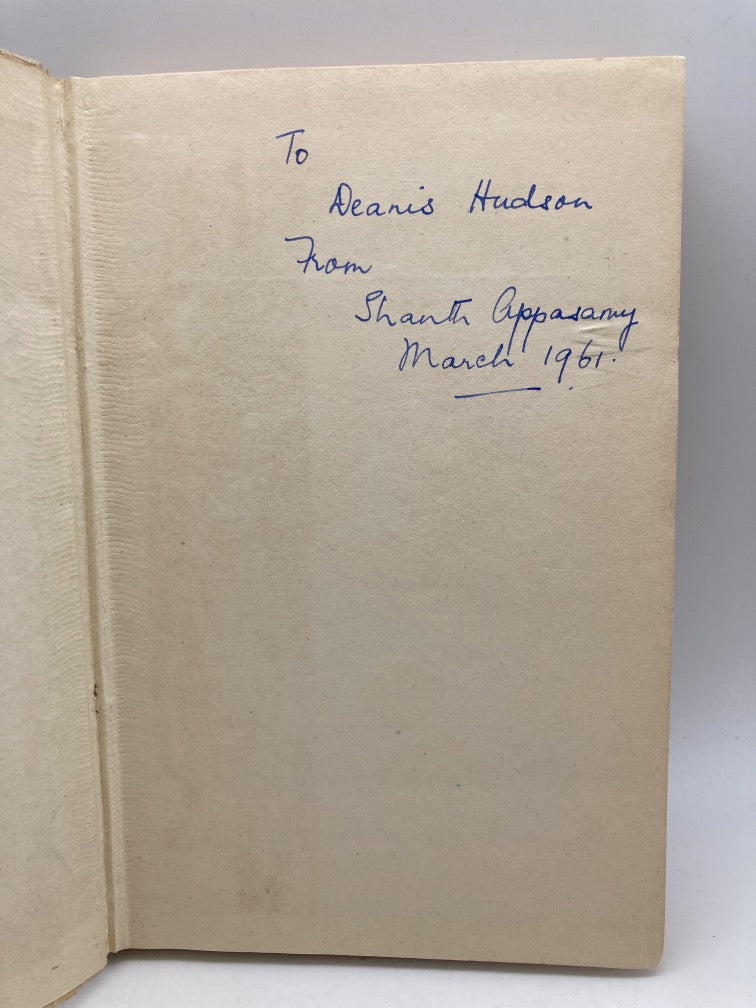 To
Deanis Hudson
From
Shanth Appasamy
March 1961.